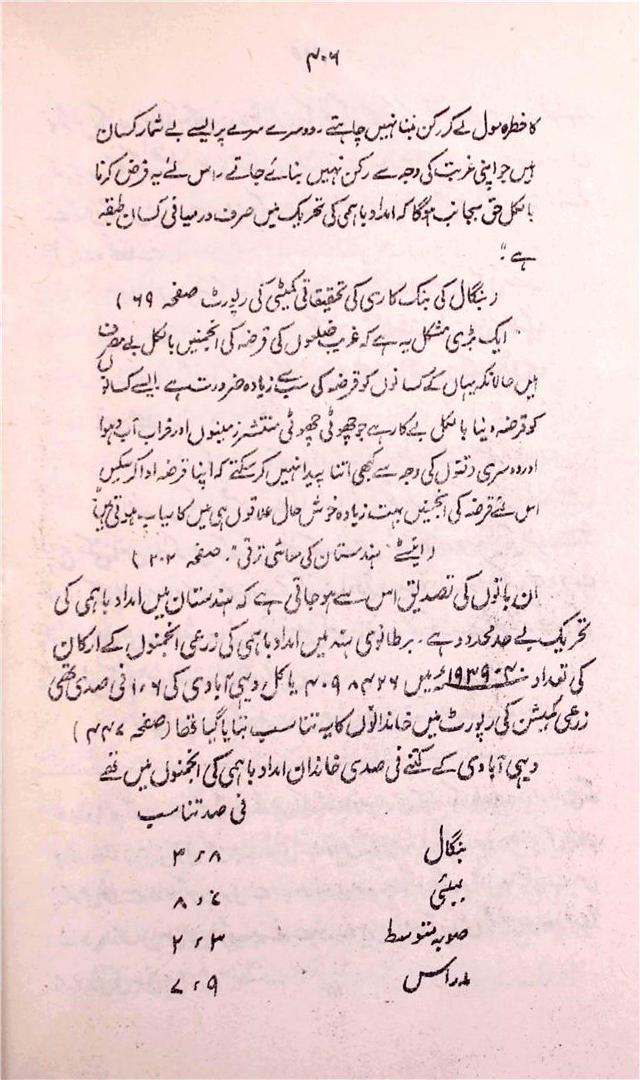 ۴۰۶
کا خطرہ مول لے کر رکن بننا نہیں چاہتے ۔ دوسرے سرے پر ایسے بے شمار کسان
ہیں جو اپنی غربت کی وجہ سے رکن نہیں بنائے جاتے ۔ اس لئے یہ فرض کرنا
بالکل حق بجانب ہوگا کہ امداد باہمی کی تحریک میں صرف درمیانی کسان طبقہ
ہے "
( بنگال کی بنک کاری کی تحقیقاتی کمیٹی کی رپورٹ صفحہ ۶۹ )
" ایک بڑی مشکل یہ ہے کہ غریب ضلعوں کی قرضہ کی انجمنیں بالکل بے مصرف
ہیں حالانکہ یہاں کے کسانوں کو قرضہ کی سب سے زیادہ ضرورت ہے ایسے کسانوں
کو قرضہ دینا بالکل بے کار ہے جو چھوٹی چھوٹی منتشر زمینوں اور خراب آب و ہوا
اور دوسری دقتوں کی وجہ سے کبھی اتنا پیدا نہیں کر سکتے کہ اپنا قرضہ ادا کر سکیں
اس لئے قرضہ کی انجمنیں بہت زیادہ خوش حال علاقوں ہی میں کامیاب ہوتی ہیں"
( اینسٹے " ہندستان کی معاشی ترقی " ۔ صفحہ ۲۰۲ )
ان باتوں کی تصدیق اس سے ہو جاتی ہے کہ ہندستان میں امداد باہمی کی
تحریک بے حد محدود ہے ۔ برطانوی ہند میں امداد باہمی کی زرعی انجمنوں کے ارکان
کی تعداد ۴۰-۱۹۳۹ء میں ۴۰۹۸۴۲۶ یا کل دیہی آبادی کی ۱٫۶ فی صدی تھی
زرعی کمیشن کی رپورٹ میں خاندانوں کا یہ تناسب بتایا گیا تھا (صفحہ ۴۴۷ )
دیہی آبادی کے کتنے فی صدی خاندان امداد باہمی کی انجمنوں میں تھے
فی صد تناسب
بنگال ۳٫۸
بمبئی
صوبہ متوسط ۲٫۳
مدراس ۷٫۹